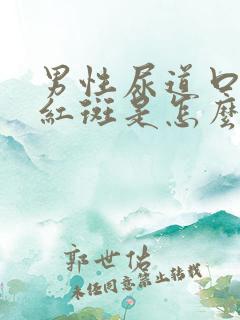 男性尿道口
紅斑是怎麼
郭世佑
未经同意禁止转载